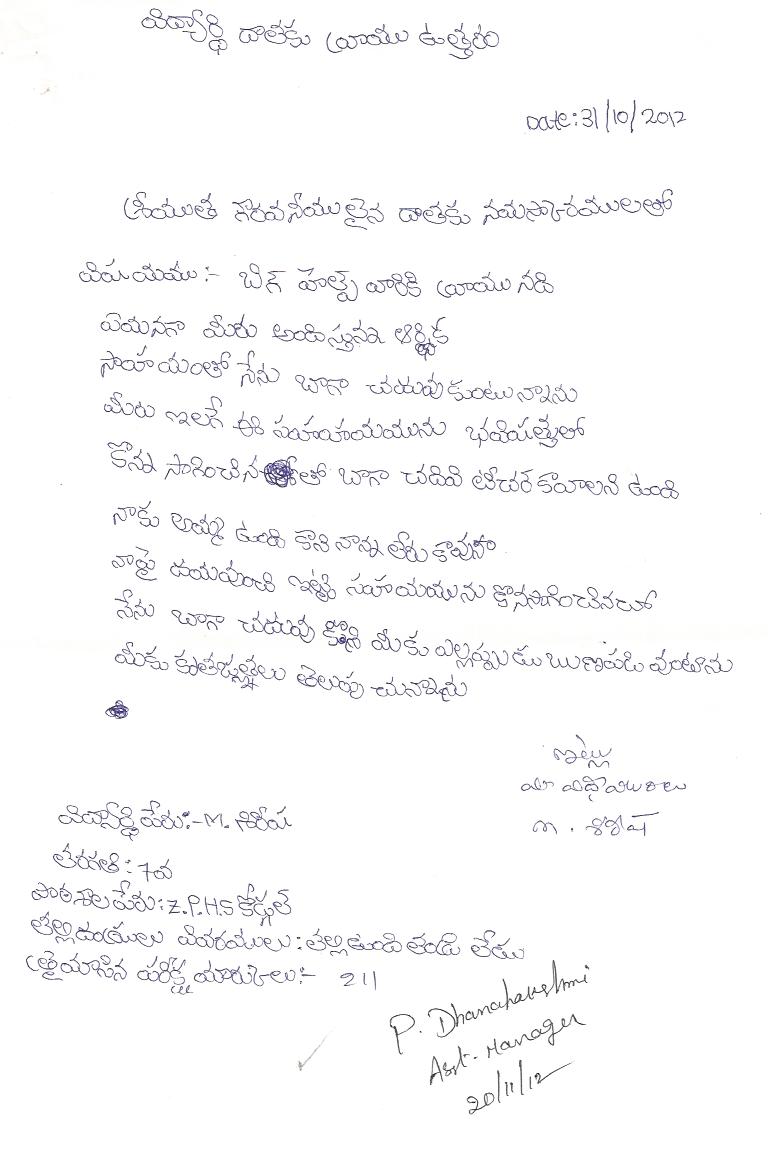 విద్యార్థి దాతకు వ్రాయు ఉత్తరం
Date: 31/10/2012
శ్రీయుత గౌరవనీయులైన దాతకు నమస్కారములతో
విషయము :- బిగ్ హెల్ప్ వారికి వ్రాయునది
ఏమనగా మీరు అందిస్తున్న ఆర్థిక
సాహయంతో నేను బాగా చదువుకుంటున్నాను
మీరు ఇలాగే ఈ సహాయమును భవిషత్తులో
కొన్న సాగించిన తో బాగా చదివి టీచర్ కావాలని ఉంది
నాకు అమ్మ ఉంది కాని నాన్న లేరు కావున
నాపై దయవుంచి ఇట్టి సహయమును కొనసాగించినచో
నేను బాగా చదువు కొని మీకు ఎల్లప్పుడు ఋణపడి వుంటాను
మీకు కృతజ్ఞతలు తెలుపు చున్నాను
ఇట్లు
మీ విద్యార్థి
M. శిరీష
విద్యార్థి పేరు:- M. శిరీష
తరగతి : 7వ
పాఠశాల పేరు: Z.P.H.S కోడ్గల్
తల్లిదండ్రులు వివరములు : తల్లి ఉంది తండ్రి లేడు
త్రైమాసిన పరీక్ష మార్కులు :- 211
P. Dhanalakshmi
Asst. Manager
20/11/12